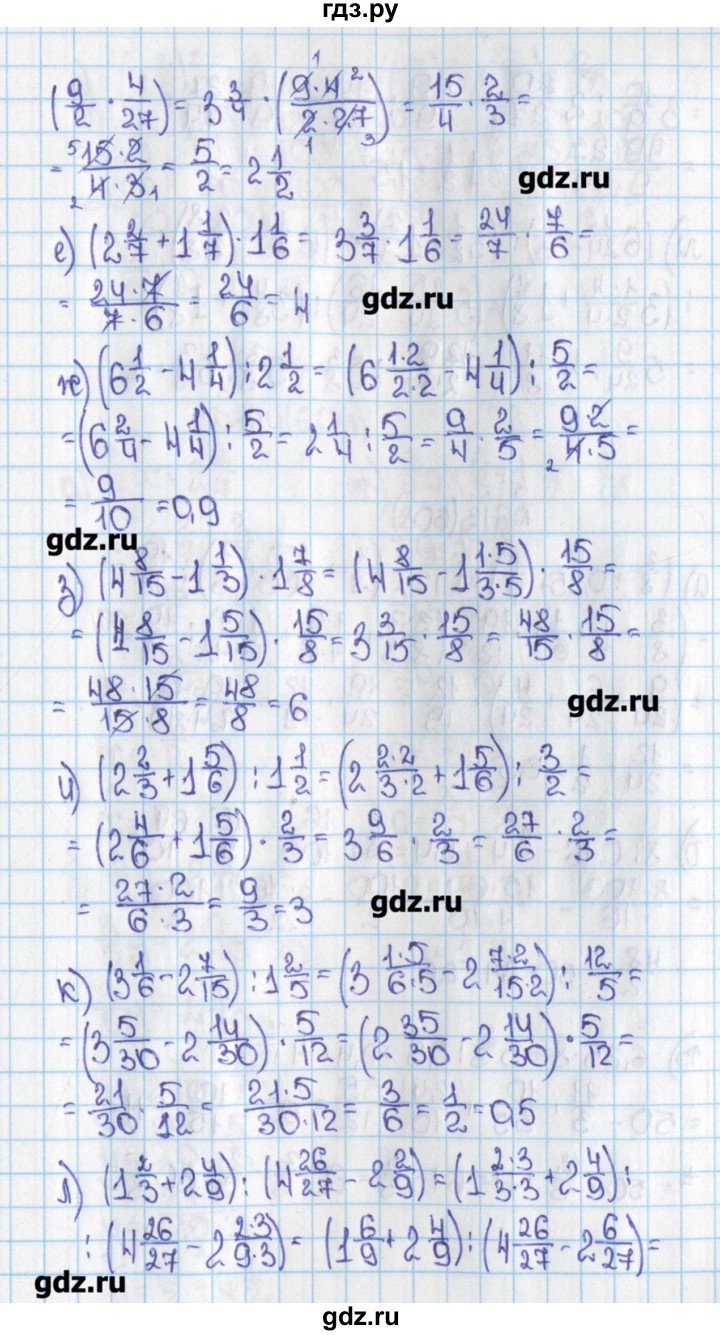 гдз.ру
(9/2 · 4/27) = 3 3/4 · (9·4/2·27) = 15/4 · 2/3 =
= 15·2/4·3 = 5/2 = 2 1/2
gdz.ru
е) (2 2/7 + 1 1/7) · 1 1/6 = 3 3/7 · 1 1/6 = 24/7 · 7/6 =
= 24·7/7·6 = 24/6 = 4
gdz.ru
ж) (6 1/2 - 4 1/4) : 2 1/2 = (6 1·2/2·2 - 4 1/4) : 5/2 =
= (6 2/4 - 4 1/4) : 5/2 = 2 1/4 : 5/2 = 9/4 · 2/5 = 9·2/4·5 =
= 9/10 = 0,9
gdz.ru
з) (4 8/15 - 1 1/3) · 1 7/8 = (4 8/15 - 1 1·5/3·5) · 15/8 =
= (4 8/15 - 1 5/15) · 15/8 = 3 3/15 · 15/8 = 48/15 · 15/8 =
= 48·15/15·8 = 48/8 = 6
gdz.ru
и) (2 2/3 + 1 5/6) : 1 1/2 = (2 2·2/3·2 + 1 5/6) : 3/2 =
= (2 4/6 + 1 5/6) · 2/3 = 3 9/6 · 2/3 = 27/6 · 2/3 =
= 27·2/6·3 = 9/3 = 3
gdz.ru
к) (3 1/6 - 2 7/15) : 1 2/5 = (3 1·5/6·5 - 2 7·2/15·2) : 12/5 =
= (3 5/30 - 2 14/30) · 5/12 = (2 35/30 - 2 14/30) · 5/12 =
= 21/30 · 5/12 = 21·5/30·12 = 3/6 = 1/2 = 0,5
л) (1 2/3 + 2 4/9) : (4 26/27 - 2 2/9) = (1 2·3/3·3 + 2 4/9) :
: (4 26/27 - 2 2·3/9·3) = (1 6/9 + 2 4/9) : (4 26/27 - 2 6/27) =
gdz.ru
gdz.ru